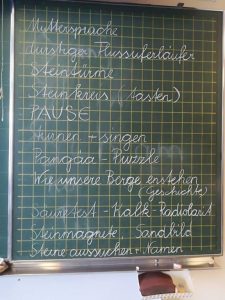 Muttersprache
durstiger Flussuferläufer
Steintürme
Steinkreis (tasten)
PAUSE
Turnen + singen
Pangäa - Puzzle
Wie unsere Berge entstehen
(Geschichte)
Säuretest - Kalk - Radiolarit
Steinmagnete, Sandbild
Steine aussuchen + Namen